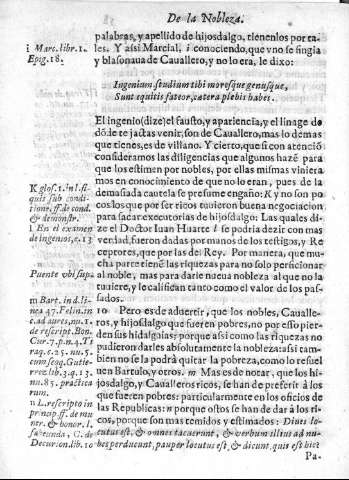 De la Nobleza.
palabras, y apellido de hijosdalgo, tienenlos por ta-
les. Y assi Marcial, i conociendo, que vno se fingia
y blasonaua de Cauallero, y no lo era, le dixo:
Ingenium studium tibi moresque genusque,
Sunt equitis fateor, cætera plebis habes.
El ingenio (dize) el fausto, y apariencia, y el linage de
dõ de te jactas venir, son de Cauallero, mas lo demas
que tienes, es de villano. Y cierto, que si con atenciõ
consideramos las diligencias que algunos hazẽ para
que los estimen por nobles, por ellas mismas viniera
mos en conocimiento de que no lo eran, pues de la
demasiada cautela se presume engaño: K y no son po
cos los que por ser ricos tuuieron buena negociacion
para sacar executorias de hijosdalgo: Las quales di-
ze el Doctor Iuan Huarte l se podria dezir con mas
verdad, fueron dadas por manos de los testigos, y Re
ceptores, que por las del Rey. Por manera, que mu-
cha parte tienẽ las riquezas para no solo perficionar
al noble, mas para darle nueua nobleza al que no la
tuuiere, y le califican tanto como el valor de los pas-
sados.
10 Pero es de aduertir, que los nobles, Caualle-
ros, y hijosdalgo que fueren pobres, no por esto pier-
den sus hidalguias: porque assi como las riquezas no
pudieron darles absolutamente la nobleza: assi tam-
bien no se la podrà quitar la pobreza, como lo resuel
uen Bartulo, y otros. m Mas es de notar, que los hi-
josdalgo, y Caualleros ricos, se han de preferir à los
que fueren pobres: particularmente en los oficios de
las Republicas: n porque estos se han de dar à los ri-
cos, porque son mas temidos y estimados: Diues lo-
cutus est, & omnes tacuerunt, & verbum illius ad nu-
bes perducunt, pauper locutus est, & dicunt, quis est hic?
Pa-
i Marc. libr. 1.
Epig. 18.
K glos. 1. in l. si
quis sub condi
tione. ff. de cond.
& demonstr.
l En el examen
de ingenios, c. 13
Puente vbi sup.
m Bart. in d. li-
nea 47. Felin. in
c. ad aures, nu. 1.
de rescript. Bon.
Cur. 7. p. n. 4. Ti
raq. c. 25. nu. 5.
cum seqq. Gutie-
rrez lib. 3. q. 13.
nu. 85. practica
rum.
n L. rescripto in
princip. ff. de mu
ner. & honor. l.
secunda, C. de
Decurion. lib. 10